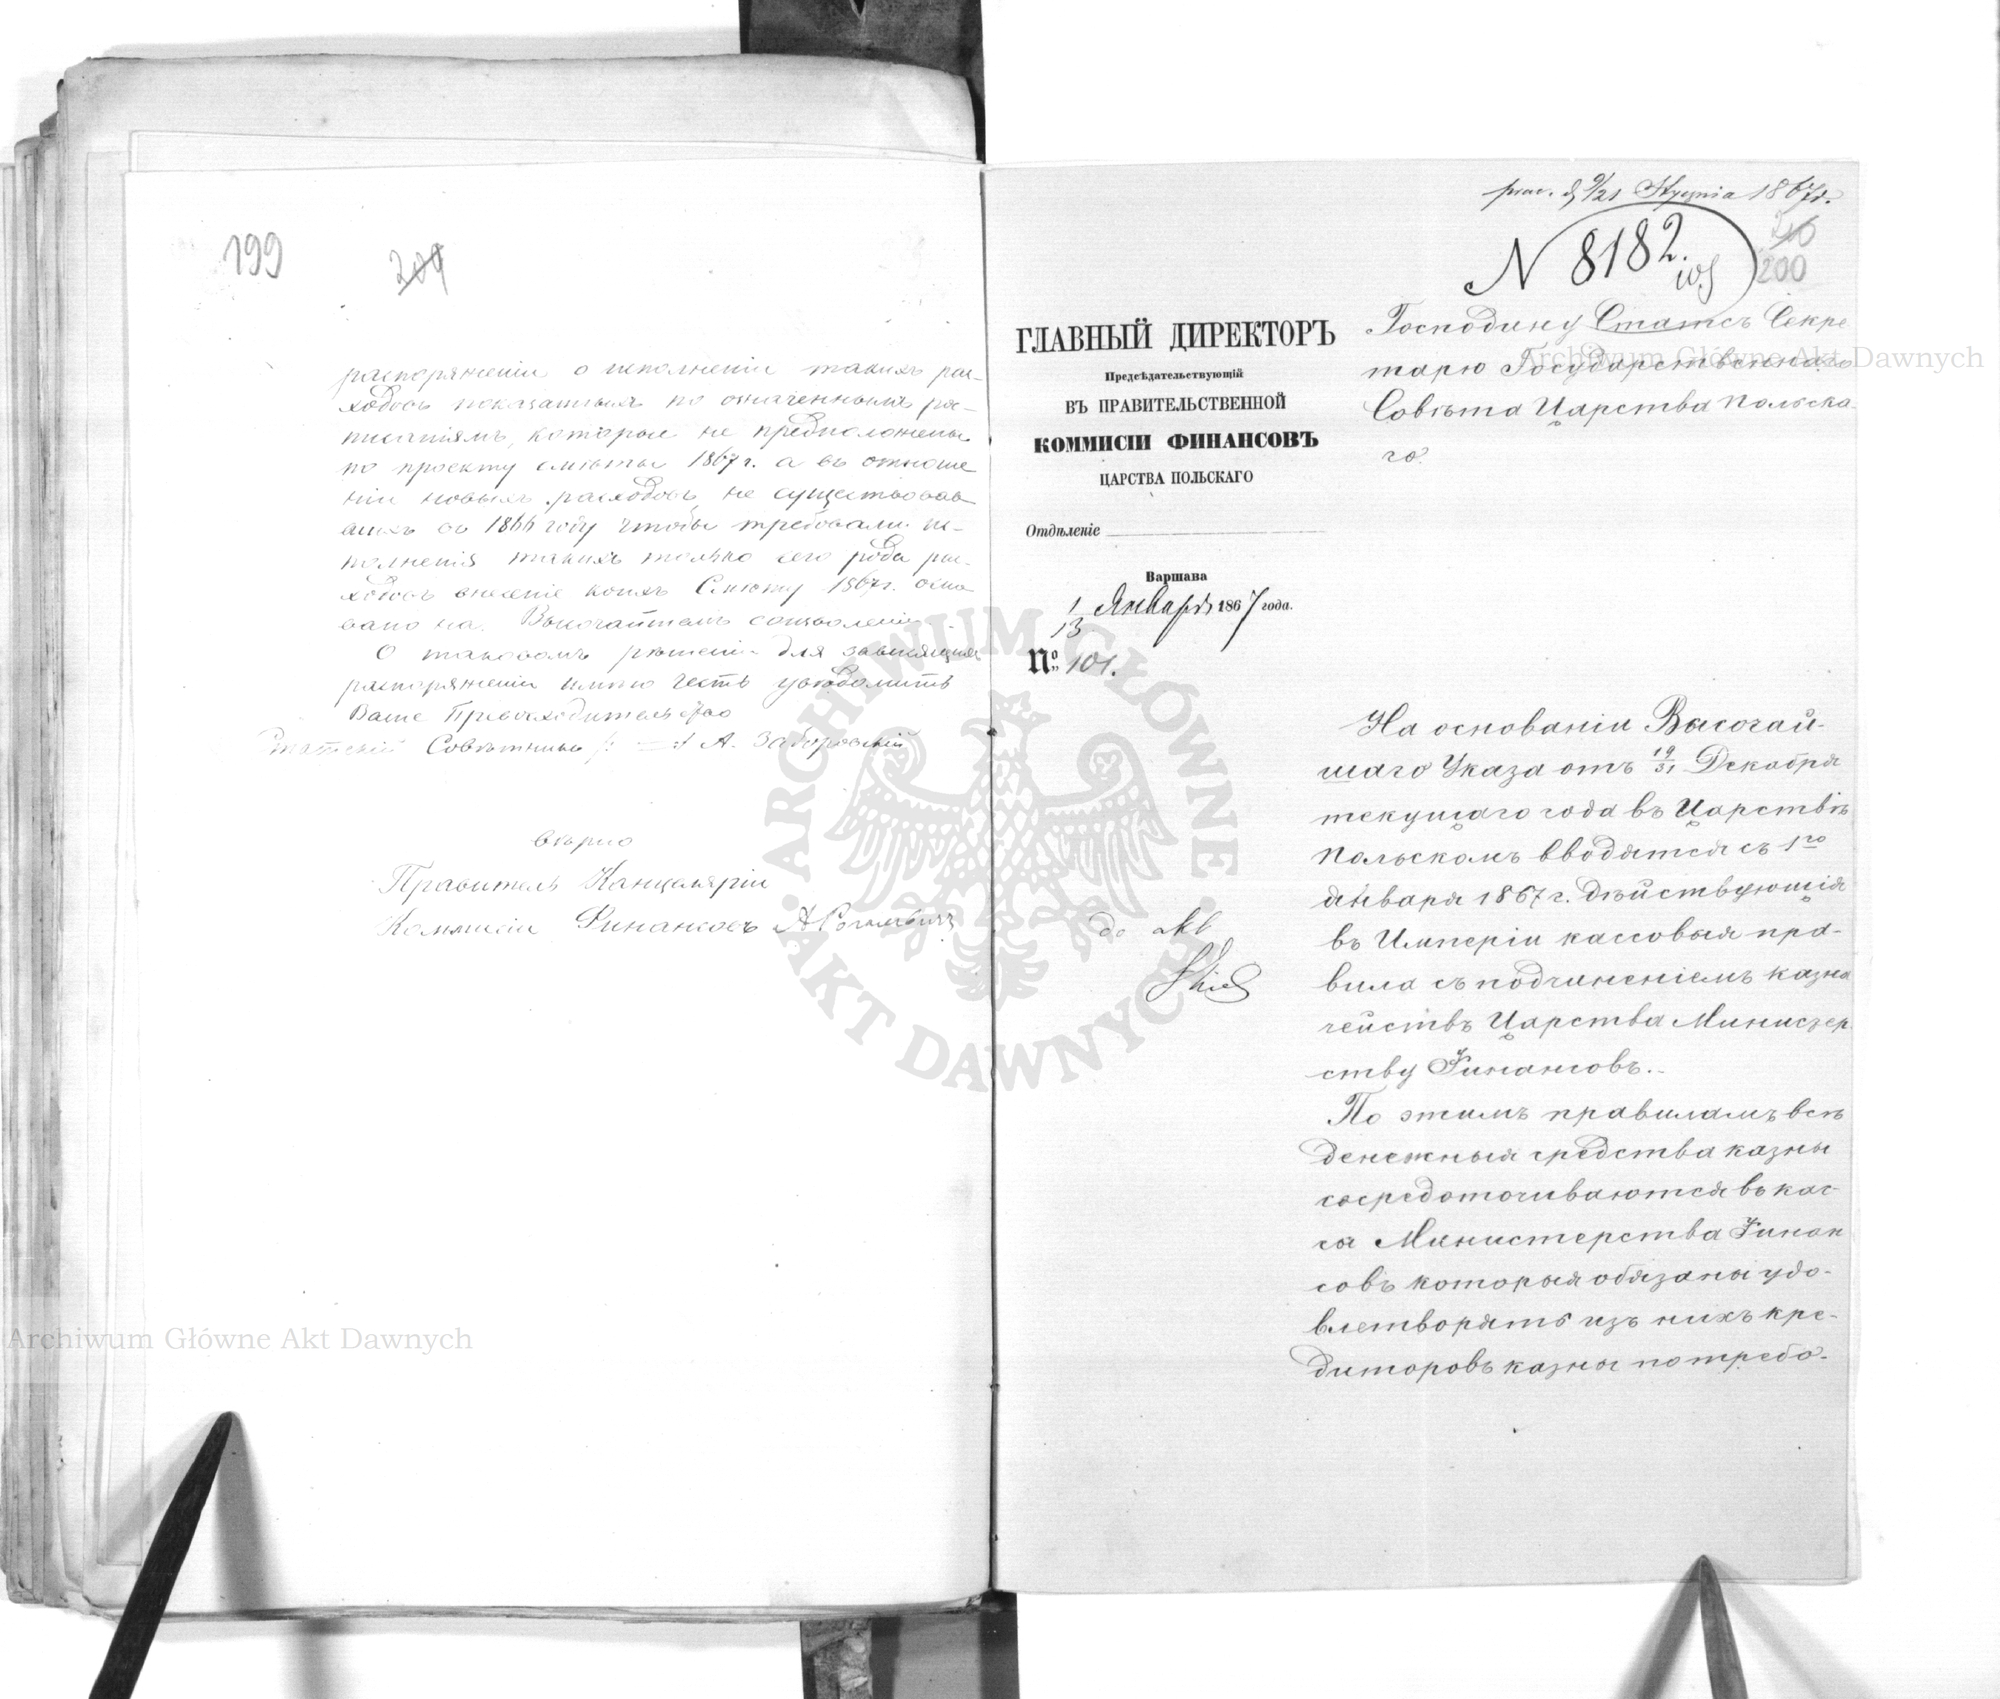 199
209
распоряженіи о исполненіи такихъ рас-
ходовъ показанныхъ по означеннымъ рос-
писаніямъ, которые не предположены
по проекту смѣты 1867 г. а въ отноше
ніи новыхъ расходовъ, не существовав
шихъ въ 1866 году чтобы требовали ис-
полненія такихъ только сего рода рас-
ходовъ внесеніе коихъ въ Смѣту 1867 г. осно
вано на Высочайшемъ соизволеніи.
О таковомъ рѣшеніи для зависящихъ
распоряженій имѣю честь увѣдомить
Ваше Превосходительство
Статскій Совѣтникъ А. Заборовскій
вѣрно
Правитель Канцеляріи
Коммисіи Финансовъ
9/21 Stycznia 1867 r.
N 8182.
210
200
ГЛАВНЫЙ ДИРЕКТОРЪ
Предсѣдательствующій
ВЪ ПРАВИТЕЛЬСТВЕННОЙ
КОММИСІИ ФИНАНСОВЪ
ЦАРСТВА ПОЛЬСКАГО
Отдѣленіе
Варшава
1/13 Января 1867 года.
№ 101.
Господину Статсъ Секре
тарю Государственнаго
Совѣта Царства Польска
го.
На основаніи Высочай-
шаго Указа отъ 19/31 Декабря
текущаго года въ Царствѣ
Польскомъ вводятся съ 1го
Января 1867 г. дѣйствующія
въ Имперіи кассовыя пра-
вила съ подчиненіемъ казна
чействъ Царства Министер
ству Финансовъ.
По этимъ правиламъ всѣ
денежныя средства казны
сосредоточиваются въ кас-
сы Министерства Финан
совъ которыя обязаны удо-
влетворять изъ нихъ кре-
диторовъ казны по требо-
do akt
Archiwum Główne Akt Dawnych
Archiwum Główne Akt Dawnych
ARCHIWUM GŁÓWNE
AKT DAWNYCH